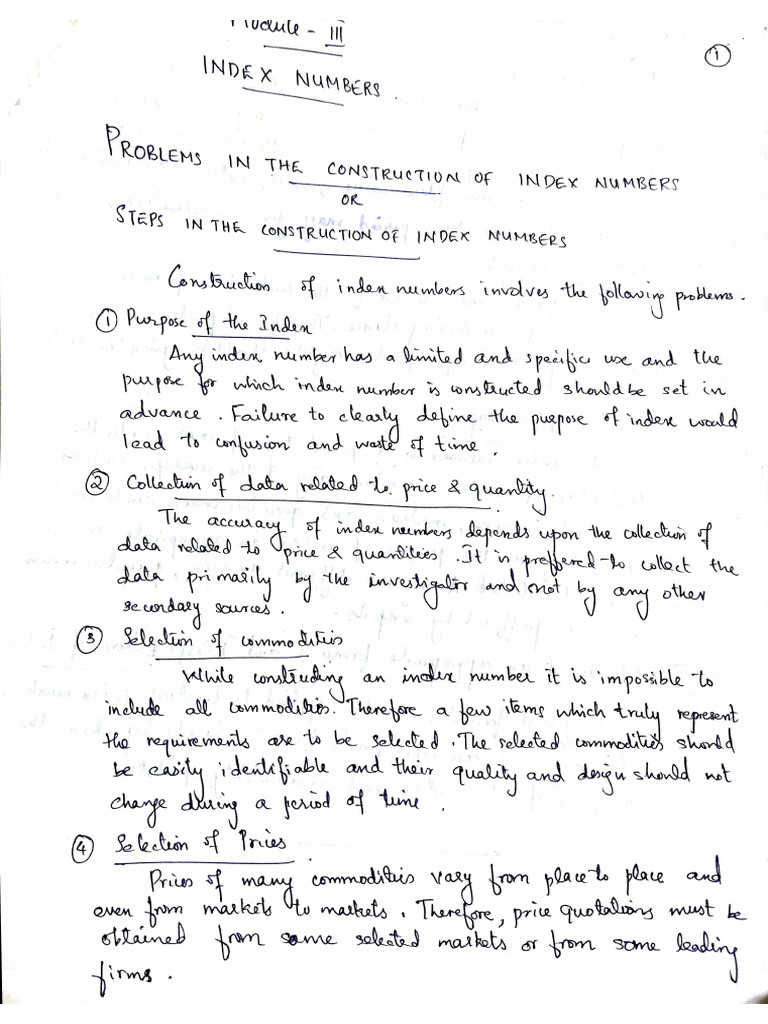 Module - III
①
INDEX NUMBERS.
PROBLEMS IN THE CONSTRUCTION OF INDEX NUMBERS
OR
STEPS IN THE CONSTRUCTION OF INDEX NUMBERS
Construction of index numbers involves the following problems.
① Purpose of the Index
Any index number has a limited and specific use and the
purpose for which index number is constructed should be set in
advance. Failure to clearly define the purpose of index would
lead to confusion and waste of time.
② Collection of data related to price & quantity.
The accuracy of index numbers depends upon the collection of
data related to price & quantities. It is preffered to collect the
data primarily by the investigator and not by any other
secondary sources.
③ Selection of commodities
While constructing an index number it is impossible to
include all commodities. Therefore a few items which truly represent
the requirements are to be selected. The selected commodities should
be easity identifiable and their quality and design should not
change during a period of time.
④ Selection of Prices
Prices of many commodities vary from place to place and
even from markets to markets. Therefore, price quotations must be
obtained from some selected markets or from some leading
firms.